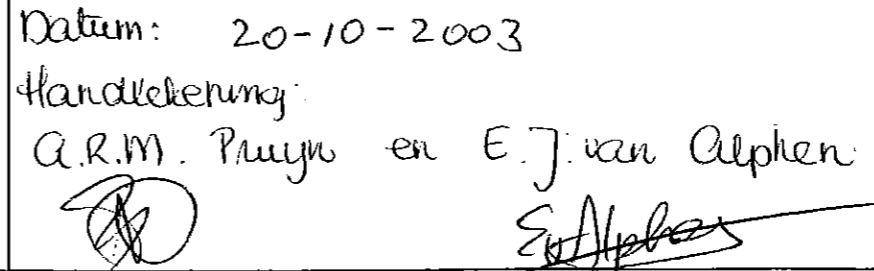 Datum: 20-10-2003
Handtekening:
A.R.M. Pruyn en E.J. van Alphen
EvAlphen